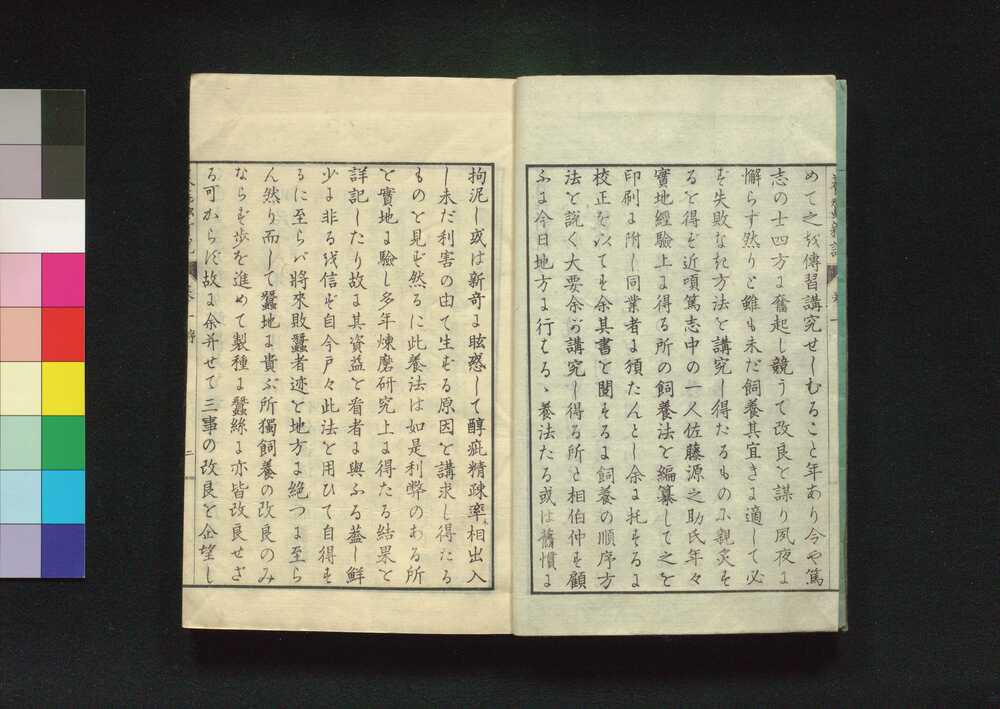 めて之を傳習講究せしむること年あり今や篤
志の士四方に奮起し競うて改良を謀り夙夜に
懈らす然りと雖も未だ飼養其宜きに適して必
ず失敗なき方法を講究し得たるものに親炙す
るを得ず近頃篤志中の一人佐藤源之助氏年々
實地經驗上に得る所の飼養法を編纂して之を
印刷に附し同業者に頒たんとし余に托するに
校正を以てす余其書を閲するに飼養の順序方
法を説く大要余が講究し得る所と相伯仲す顧
ふに今日地方に行はるゝ養法たる或は舊慣に
拘泥し或は新奇に眩惑して醇疵精疎率相出入
し未だ利害の由て生ずる原因を講求し得たる
ものを見ず然るに此養法は如是利弊のある所
を實地に驗し多年煉磨研究上に得たる結果を
詳記したり故に其資益を看者に與ふる蓋し鮮
少に非るを信ず自今戸々此法を用ひて自得す
るに至らば將來敗蠶者迹を地方に絶つに至ら
ん然り而して蠶地に貴ぶ所獨飼養の改良のみ
ならず歩を進めて製種に蠶絲に亦皆改良せざ
る可からず故に余并せて三事の改良を企望し
二